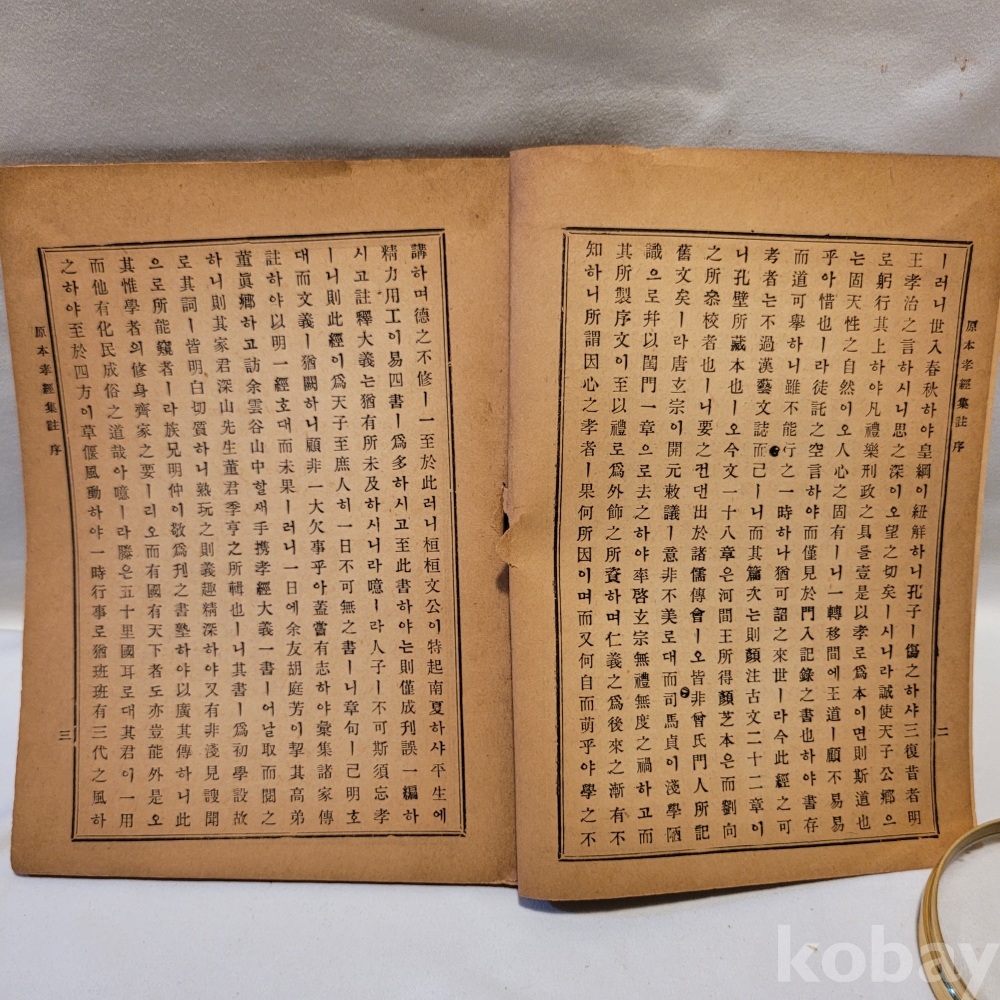 原本孝經集註 序
二
ㅣ러니世入春秋하야皇綱이紐解하니孔子ㅣ傷之하샤三復昔者明
王孝治之言하시니思之深이오望之切矣ㅣ시니라誠使天子公鄕으
로躬行其上하야凡禮樂刑政之具를壹是以孝로爲本이면則斯道也
는固天性之自然이오人心之固有ㅣ니一轉移間에王道ㅣ顧不易易
乎아惜也ㅣ라徒託之空言하야而僅見於門入記錄之書也하야書存
而道可擧하니雖不能行之一時하나猶可詔之來世ㅣ라今此經之可
考者는不過漢藝文誌而己ㅣ니而其篇次는則顏注古文二十二章이
니孔壁所藏本也ㅣ오今文一十八章은河間王所得顏芝本은而劉向
之所叅校者也ㅣ니要之컨댄出於諸儒傳會ㅣ오皆非曾氏門人所記
舊文矣ㅣ라唐玄宗이開元敕議ㅣ意非不美로대而司馬貞이淺學陋
識으로幷以閨門一章으로去之하야率啓玄宗無禮無度之禍하고而
其所製序文이至以禮로爲外飾之所資하며仁義之爲後來之漸有不
知하니所謂因心之孝者ㅣ果何所因이며而又何自而萌乎야學之不
講하며德之不修ㅣ一至於此러니桓桓文公이特起南夏하샤平生에
精力用工이易四書ㅣ爲多하시고至此書하야는則僅成刊誤一編하
시고註釋大義는猶有所未及하시니라噫ㅣ라人子ㅣ不可斯須忘孝
ㅣ니則此經이爲天子至庶人히一日不可無之書ㅣ니章句ㅣ己明호
대而文義ㅣ猶闕하니顧非一大欠事乎아蓋嘗有志하야彙集諸家傳
註하야以明一經호대而未果ㅣ러니一日에余友胡庭芳이挈其高弟
董眞鄕하고訪余雲谷山中할새手携孝經大義一書ㅣ어날取而閱之
하니則其家君深山先生董君季亨之所輯也ㅣ니其書ㅣ爲初學設故
로其詞ㅣ皆明白切質하니熟玩之則義趣精深하야又有非淺見謏聞
으로所能窺者ㅣ라族兄明仲이敬爲刊之書塾하야以廣其傳하니此
其惟學者의修身齊家之要ㅣ리오而有國有天下者도亦豈能外是오
而他有化民成俗之道哉아噫ㅣ라滕은五十里國耳로대其君이一用
之하야至於四方이草偃風動하야一時行事로猶班班有三代之風하
原本孝經集註 序
三
kobay